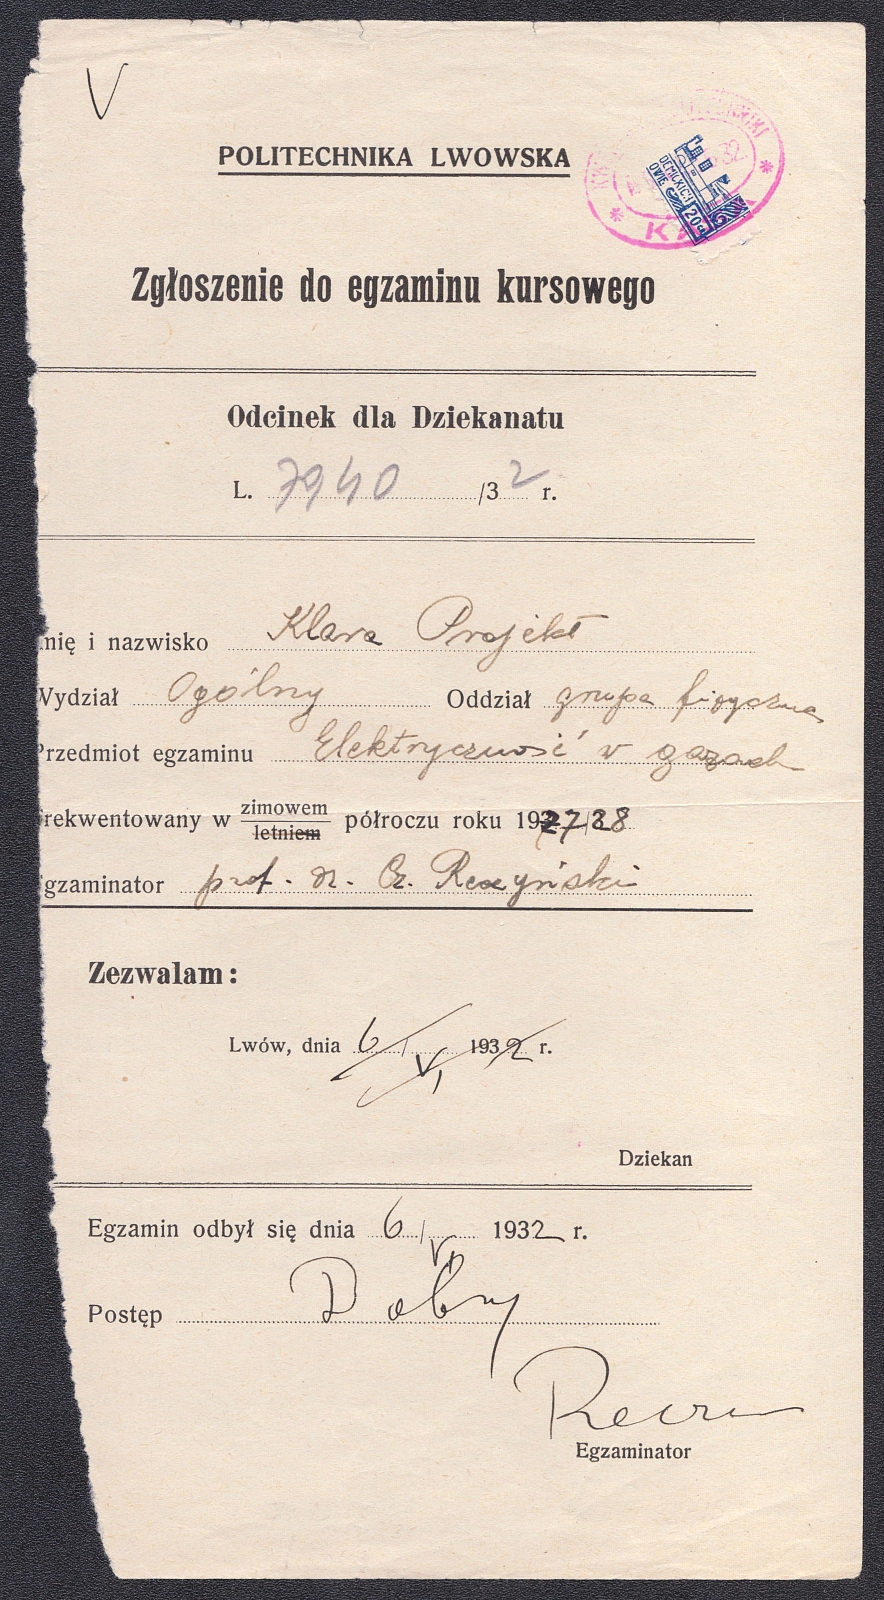 V
POLITECHNIKA LWOWSKA
32
DEMICKICH
OWIE
20
Zgłoszenie do egzaminu kursowego
Odcinek dla Dziekanatu
L. 7940 /32 r.
mię i nazwisko Klara Projekt
Wydział Ogólny Oddział grupa fizyczna
Przedmiot egzaminu Elektryczność w gazach
rekwentowany w zimowem
letniem półroczu roku 1927/28
gzaminator prof. dr. Cz. Reczyński
Zezwalam:
Lwów, dnia 6/VI 1932 r.
Dziekan
Egzamin odbył się dnia 6/VI 1932 r.
Postęp Dobry
Egzaminator